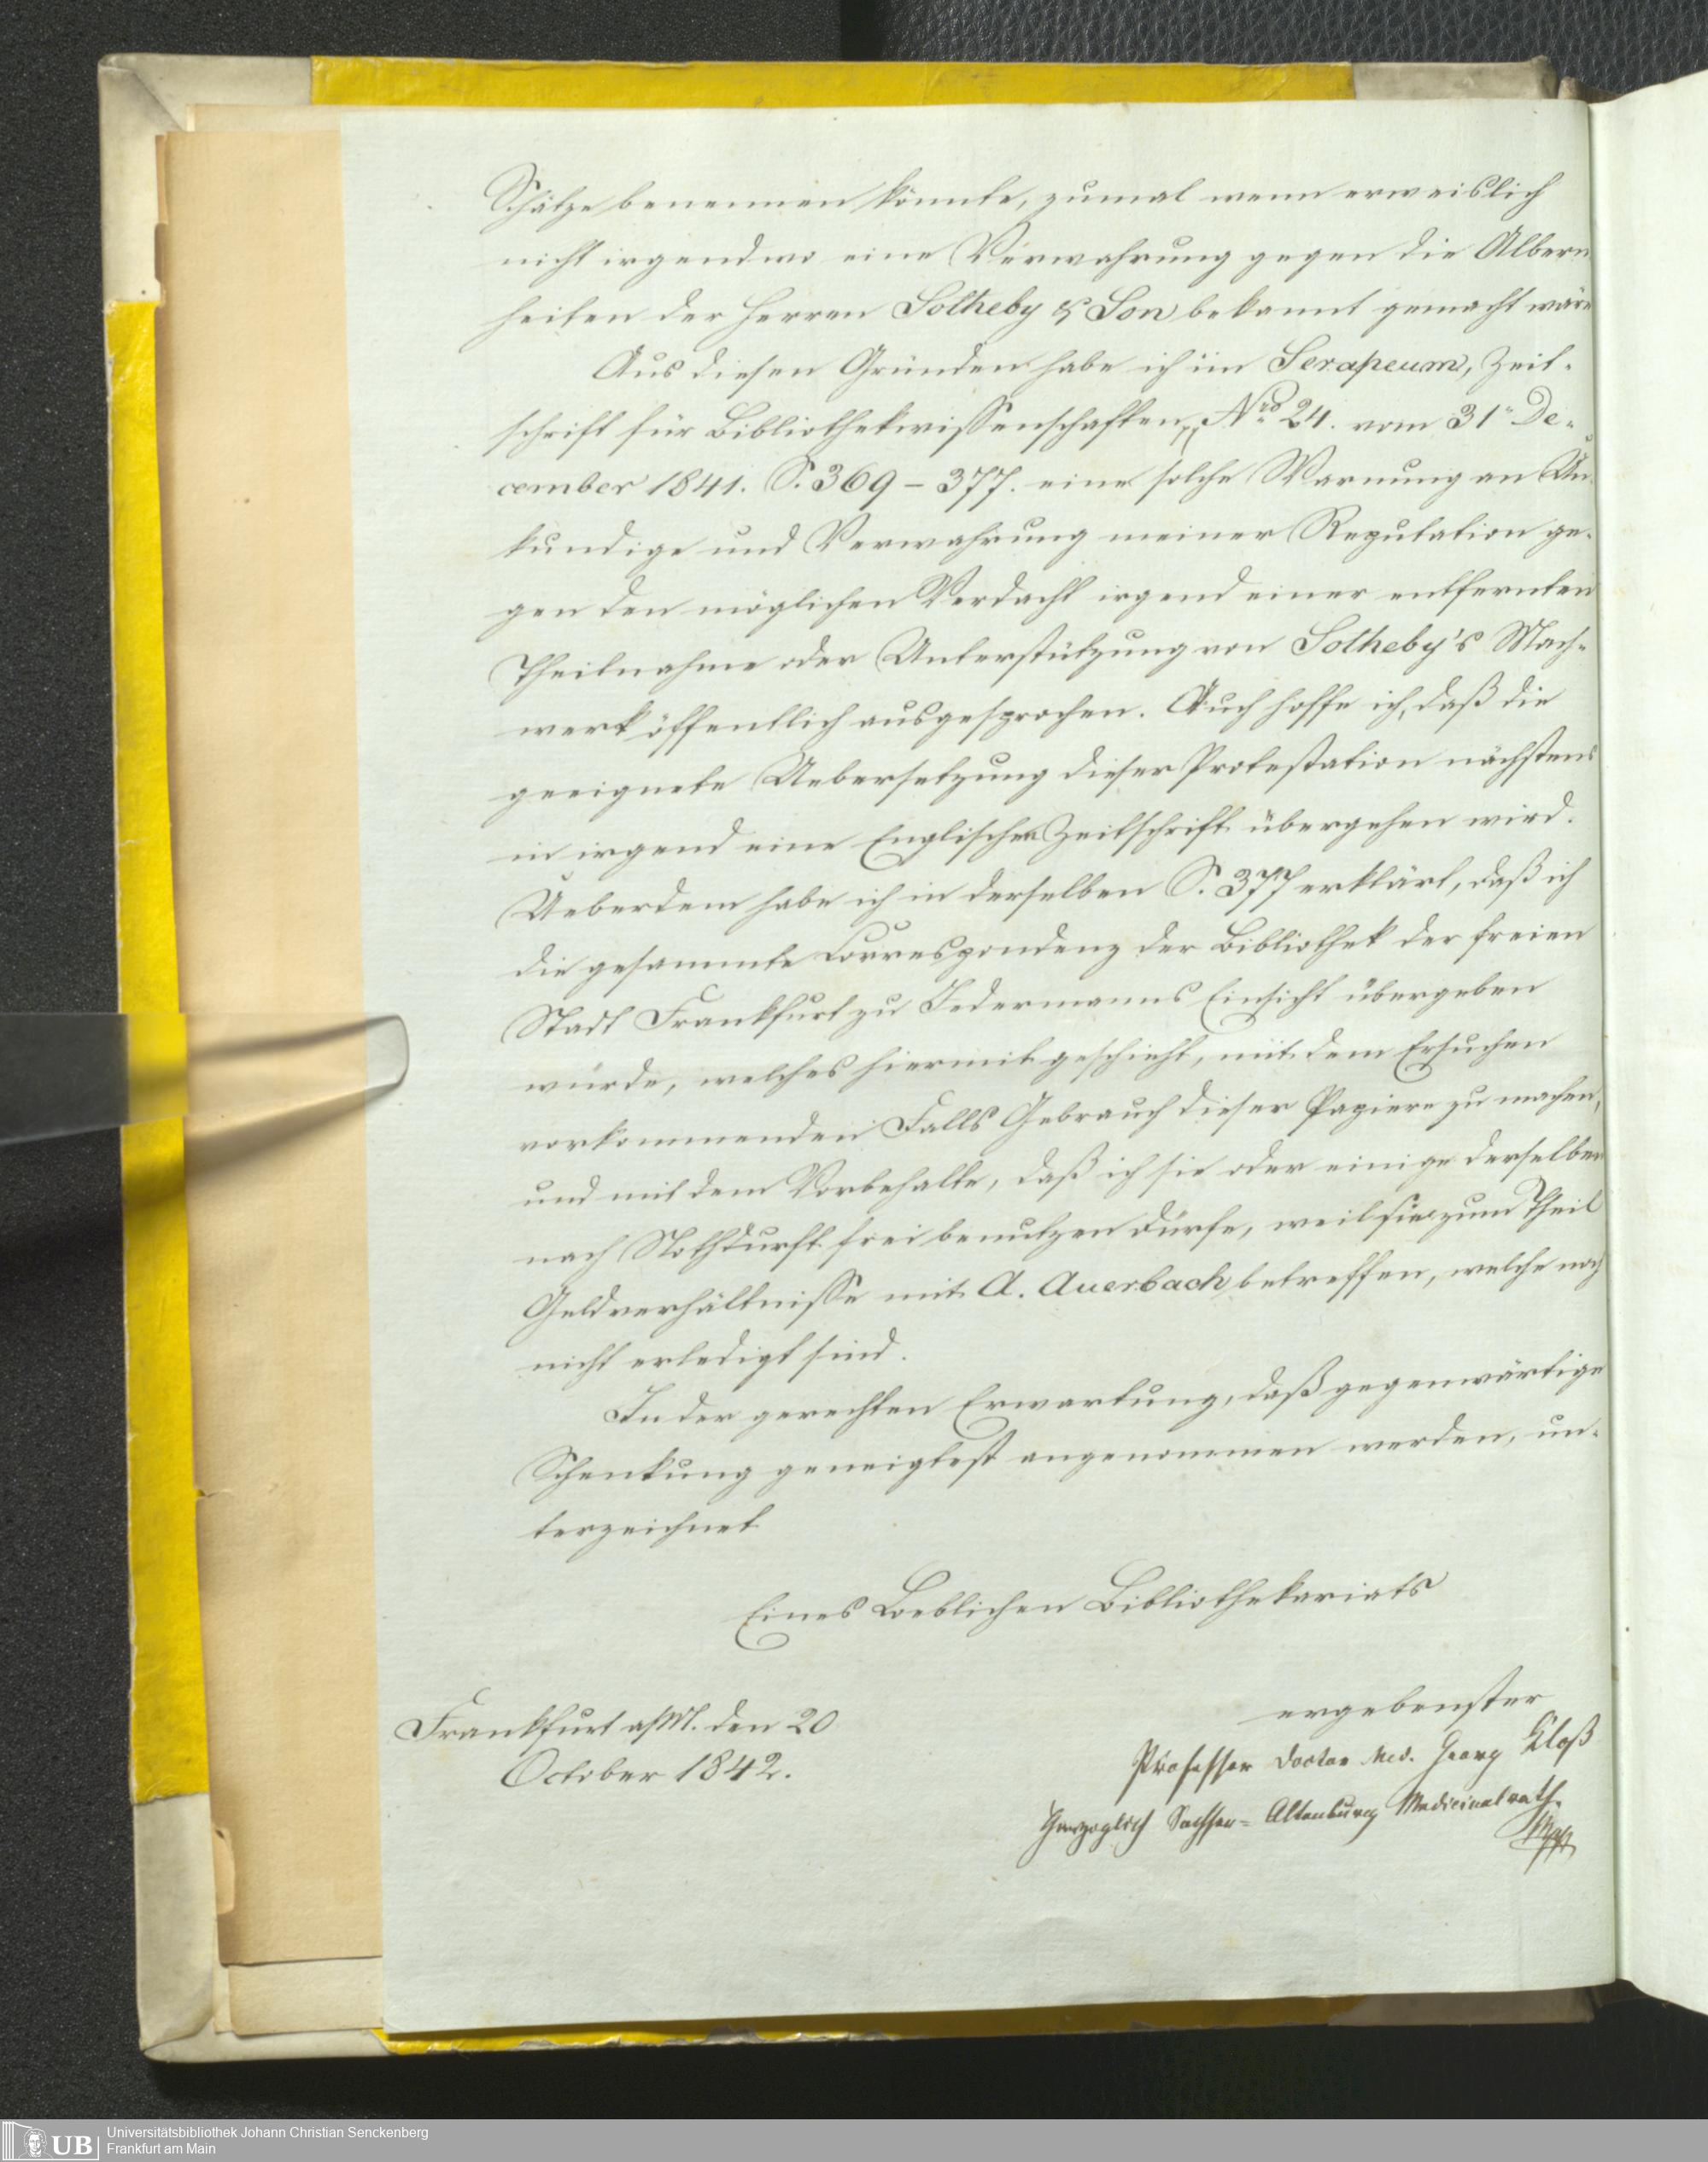 Schätze benennen könnte, zumal wenn erweislich
nicht irgendwo eine Verwahrung gegen die Albern
heiten der Herren Sotheby & Son bekannt gemacht wäre
Aus diesen Gründen habe ich im Serapeum, Zeit-
schrift für Bibliothekwissenschaften, Nro 24. vom 31n De-
cember 1841. S. 369 - 377. eine solche Warnung an Un
kundige und Verwahrung meiner Reputation ge-
gen den möglichen Verdacht irgend einer entfernten
Theilnahme oder Unterstützung von Sotheby's Mach-
werk öffentlich ausgesprochen. Auch hoffe ich, daß die
geeignete Uebersetzung dieser Protestation nächstens
in irgend eine Englische Zeitschrift übergehen wird.
Ueberdem habe ich in derselben S. 377 erklärt, daß ich
die gesammte Correspondenz der Bibliothek der freien
Stadt Frankfurt zu Jedermanns Einsicht übergeben
würde, welches hiermit geschieht, mit dem Ersuchen
vorkommenden Falls Gebrauch dieser Papiere zu machen,
und mit dem Vorbehalte, daß ich sie oder einige derselben
nach Nothdurft frei benutzen dürfe, weil sie zum Theil
Geldverhältnisse mit A. Auerbach betreffen, welche noch
nicht erledigt sind.
In der gerechten Erwartung, daß gegenwärtige
Schenkung geneigtest angenommen werden, un-
terzeichnet
Eines Loeblichen Bibliothekariats
ergebenster
Frankfurt a/M. den 20
October 1842.
Professor Doctor Med. Georg Kloß
Herzoglich Sachsen-Altenburg Medicinalrath.
Universitätsbibliothek Johann Christian Senckenberg
Frankfurt am Main
UB